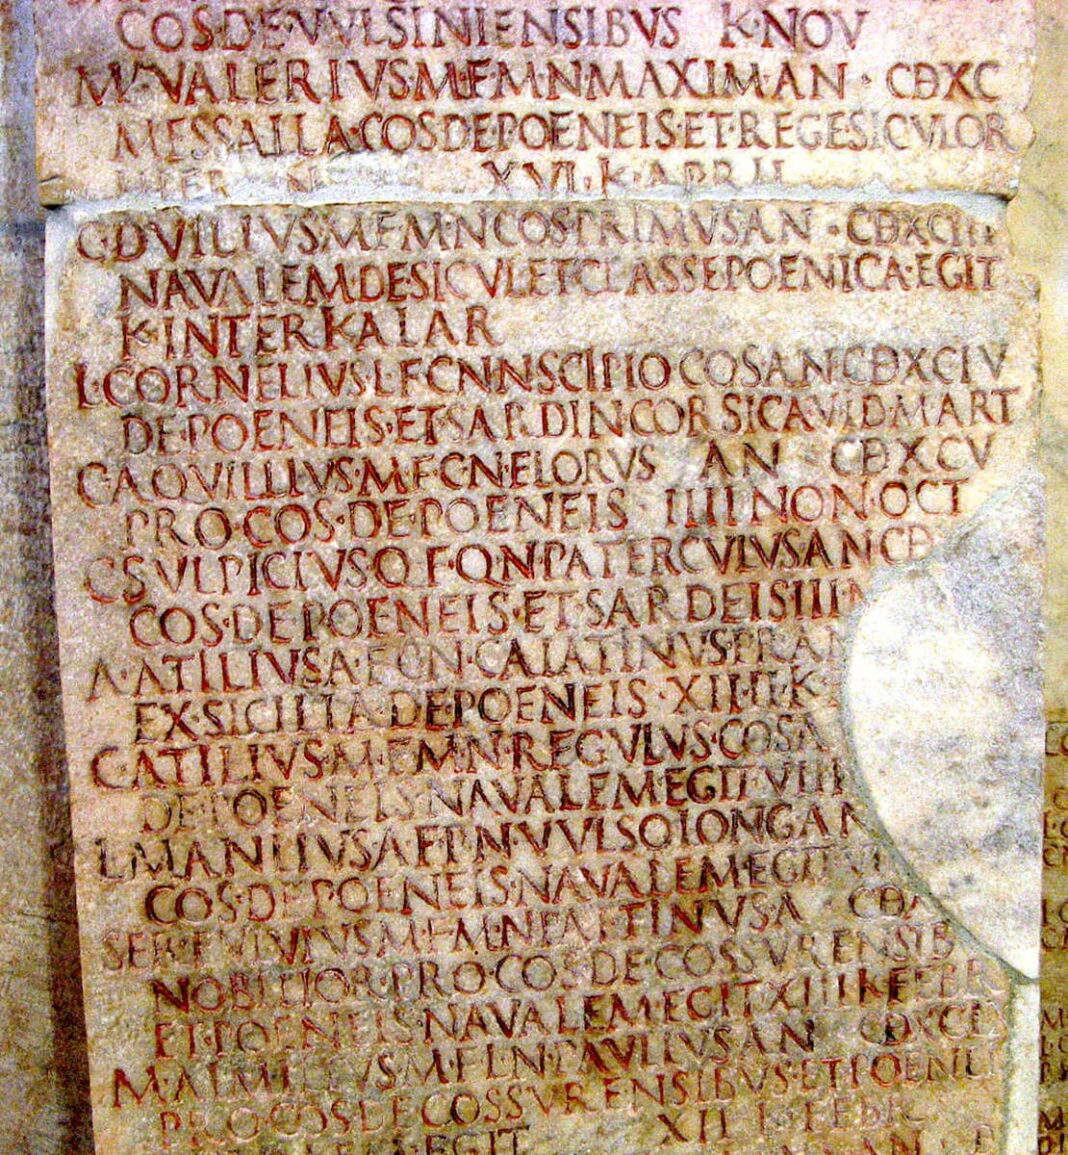 COS·DE·VVLSINIENSIBVS K·NOV
M·VALERIVS·M·F·M·N·MAXIM AN · CDXC
MESSALLA·COS·DE·POENEIS·ET·REGE·SICVLOR
XVI·K·APRIL
C·DVILIVS·M·F·M·N·COS·PRIMVS AN · CDXCIII
NAVALEM·DE·SICVL·ET·CLASSE·POENICA·EGIT
K·INTERKALAR
L·CORNELIVS·L·F·CN·N·SCIPIO COS AN CDXCIV
DE·POENEIS·ET·SARDIN CORSICA·V·ID·MART
C·AQVILLIVS·M·F·C·N·FLORVS AN CDXCV
PRO·COS·DE·POENEIS · IIII NON·OCT
C·SVLPICIVS·Q·F·Q·N·PATERCVLVS AN CD
COS·DE·POENEIS·ET·SARDEIS III N
A·ATILIVS·A·F·C·N·CALATINVS·PR AN
EX·SICILIA·DE·POENEIS·XIIII·K
C·ATILIVS·M·F·M·N·REGVLVS·COS A
DE·POENEIS·NAVALEM·EGIT·VIII
L·MANLIVS·A·F·P·N·VVLSO LONG AN
COS·DE·POENEIS·NAVALEM EGIT VI
SER·FVLVIVS·M·F·M·N·PAETINVS A CD
NOBILIOR·PRO·COS·DE·COSSVRENSIB
ET·POENEIS·NAVALEM EGIT XIII K FEBR
M·AIMILIVS·M·F·L·N·PAVLLVS AN CDXCI
PRO·COS·DE·COSSVRENSIBVS·ET·POENEIS
XII K FEBR
EGIT AN